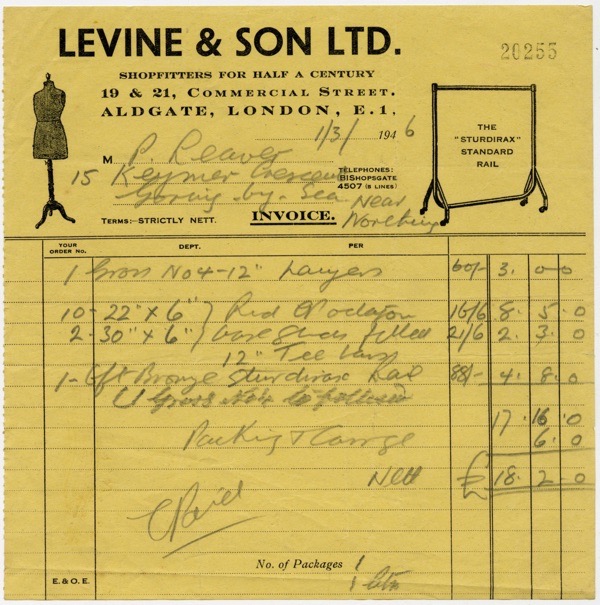 LEVINE & SON LTD.
20255
SHOPFITTERS FOR HALF A CENTURY
19 & 21, COMMERCIAL STREET.
ALDGATE, LONDON, E.1.
1/3/ 1946
THE
"STURDIRAX"
STANDARD
RAIL
M P. Reaver
15 Keymer Crescent
Goring-by-Sea
Near
Worthing
TELEPHONES:
BISHOPSGATE
4507 (5 LINES)
TERMS:-STRICTLY NETT. INVOICE.
YOUR ORDER No. DEPT. PER
1 Gross No 4-12" Hangers 60/- 3. 0-0
10-22" x 6" } Red 16/6 8. 5. 0
2-30" x 6" } filled 21/6 2. 3. 0
12" Tee
1-6ft Bronze Sturdirax Rail 88/- 4. 8. 0
Gross No 4 to follow
17. 16. 0
Packing & Carriage 6. 0
Nett £ 18. 2. 0
No. of Packages 1
1
E. & O. E.